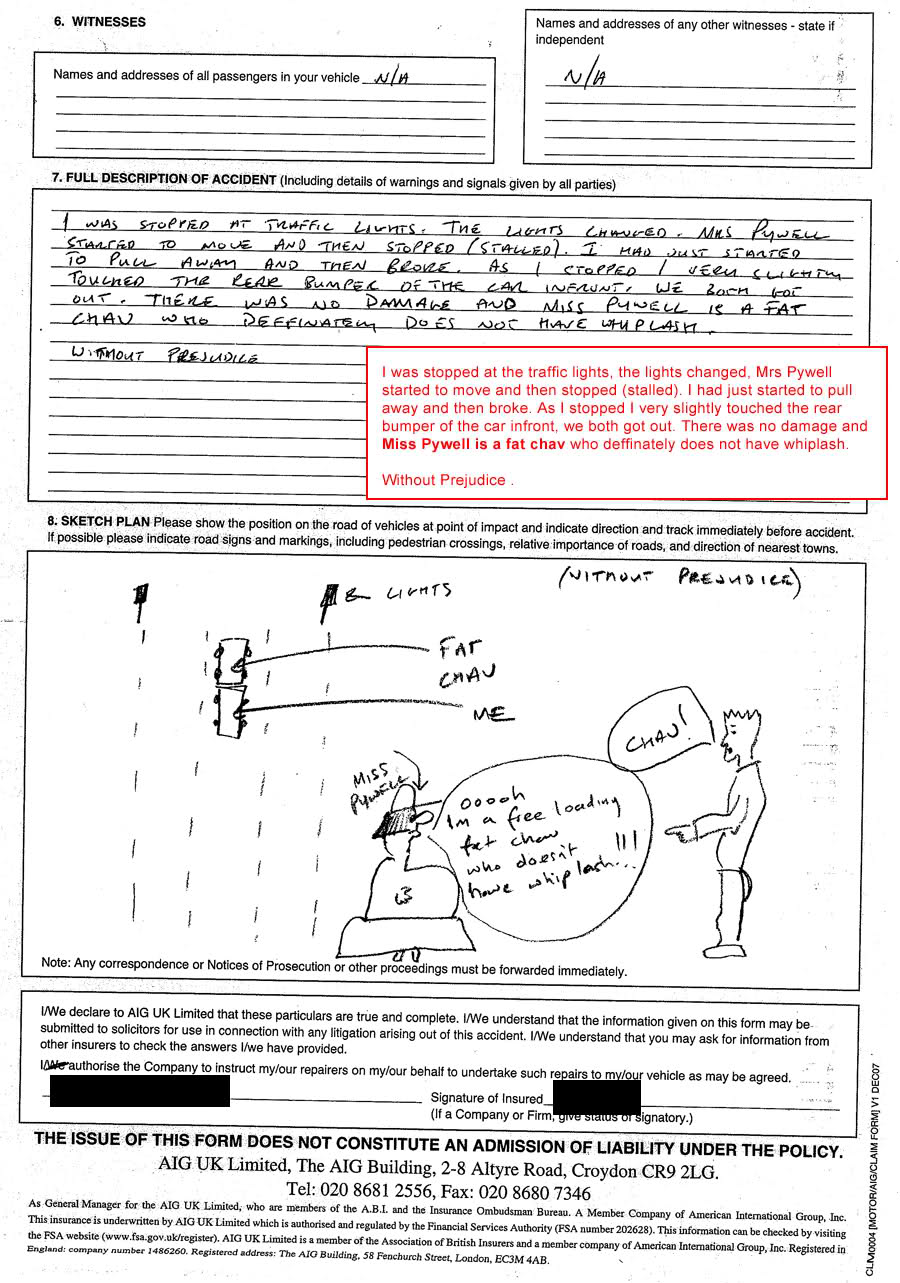 6. WITNESSES
Names and addresses of any other witnesses - state if
independent
N/A
Names and addresses of all passengers in your vehicle N/A
7. FULL DESCRIPTION OF ACCIDENT (Including details of warnings and signals given by all parties)
I WAS STOPPED AT TRAFFIC LIGHTS. THE LIGHTS CHANGED. MRS PYWELL
STARTED TO MOVE AND THEN STOPPED (STALLED). I HAD JUST STARTED
TO PULL AWAY AND THEN BROKE. AS I STOPPED I VERY SLIGHTLY
TOUCHED THE REAR BUMPER OF THE CAR INFRONT. WE BOTH GOT
OUT. THERE WAS NO DAMAGE AND MISS PYWELL IS A FAT
CHAV WHO DEFFINATELY DOES NOT HAVE WHIPLASH.
WITHOUT PREJUDICE
I was stopped at the traffic lights, the lights changed, Mrs Pywell
started to move and then stopped (stalled). I had just started to pull
away and then broke. As I stopped I very slightly touched the rear
bumper of the car infront, we both got out. There was no damage and
Miss Pywell is a fat chav who deffinately does not have whiplash.
Without Prejudice .
8. SKETCH PLAN Please show the position on the road of vehicles at point of impact and indicate direction and track immediately before accident.
If possible please indicate road signs and markings, including pedestrian crossings, relative importance of roads, and direction of nearest towns.
(WITHOUT PREJUDICE)
LIGHTS
FAT
CHAV
ME
CHAV!
MISS
PYWELL
ooooh
Im a free loading
fat chav
who doesn't
have whiplash...!!!
Note: Any correspondence or Notices of Prosecution or other proceedings must be forwarded immediately.
I/We declare to AIG UK Limited that these particulars are true and complete. I/We understand that the information given on this form may be
submitted to solicitors for use in connection with any litigation arising out of this accident. I/We understand that you may ask for information from
other insurers to check the answers I/we have provided.
I/We authorise the Company to instruct my/our repairers on my/our behalf to undertake such repairs to my/our vehicle as may be agreed.
Signature of Insured
(If a Company or Firm, give status of signatory.)
THE ISSUE OF THIS FORM DOES NOT CONSTITUTE AN ADMISSION OF LIABILITY UNDER THE POLICY.
AIG UK Limited, The AIG Building, 2-8 Altyre Road, Croydon CR9 2LG.
Tel: 020 8681 2556, Fax: 020 8680 7346
As General Manager for the AIG UK Limited, who are members of the A.B.I. and the Insurance Ombudsman Bureau. A Member Company of American International Group, Inc.
This insurance is underwritten by AIG UK Limited which is authorised and regulated by the Financial Services Authority (FSA number 202628). This information can be checked by visiting
the FSA website (www.fsa.gov.uk/register). AIG UK Limited is a member of the Association of British Insurers and a member company of American International Group, Inc. Registered in
England: company number 1486260. Registered address: The AIG Building, 58 Fenchurch Street, London, EC3M 4AB.
CLM0004 [MOTOR/AIG/CLAIM FORM] V1 DEC07